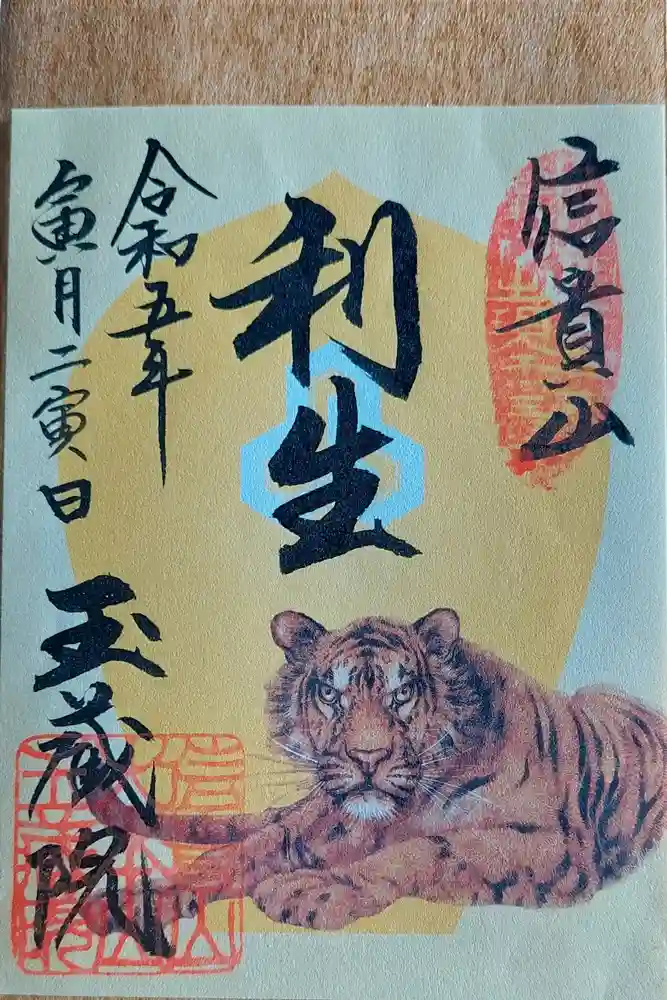 信貴山
利生
令和五年
寅月二寅日
玉蔵院